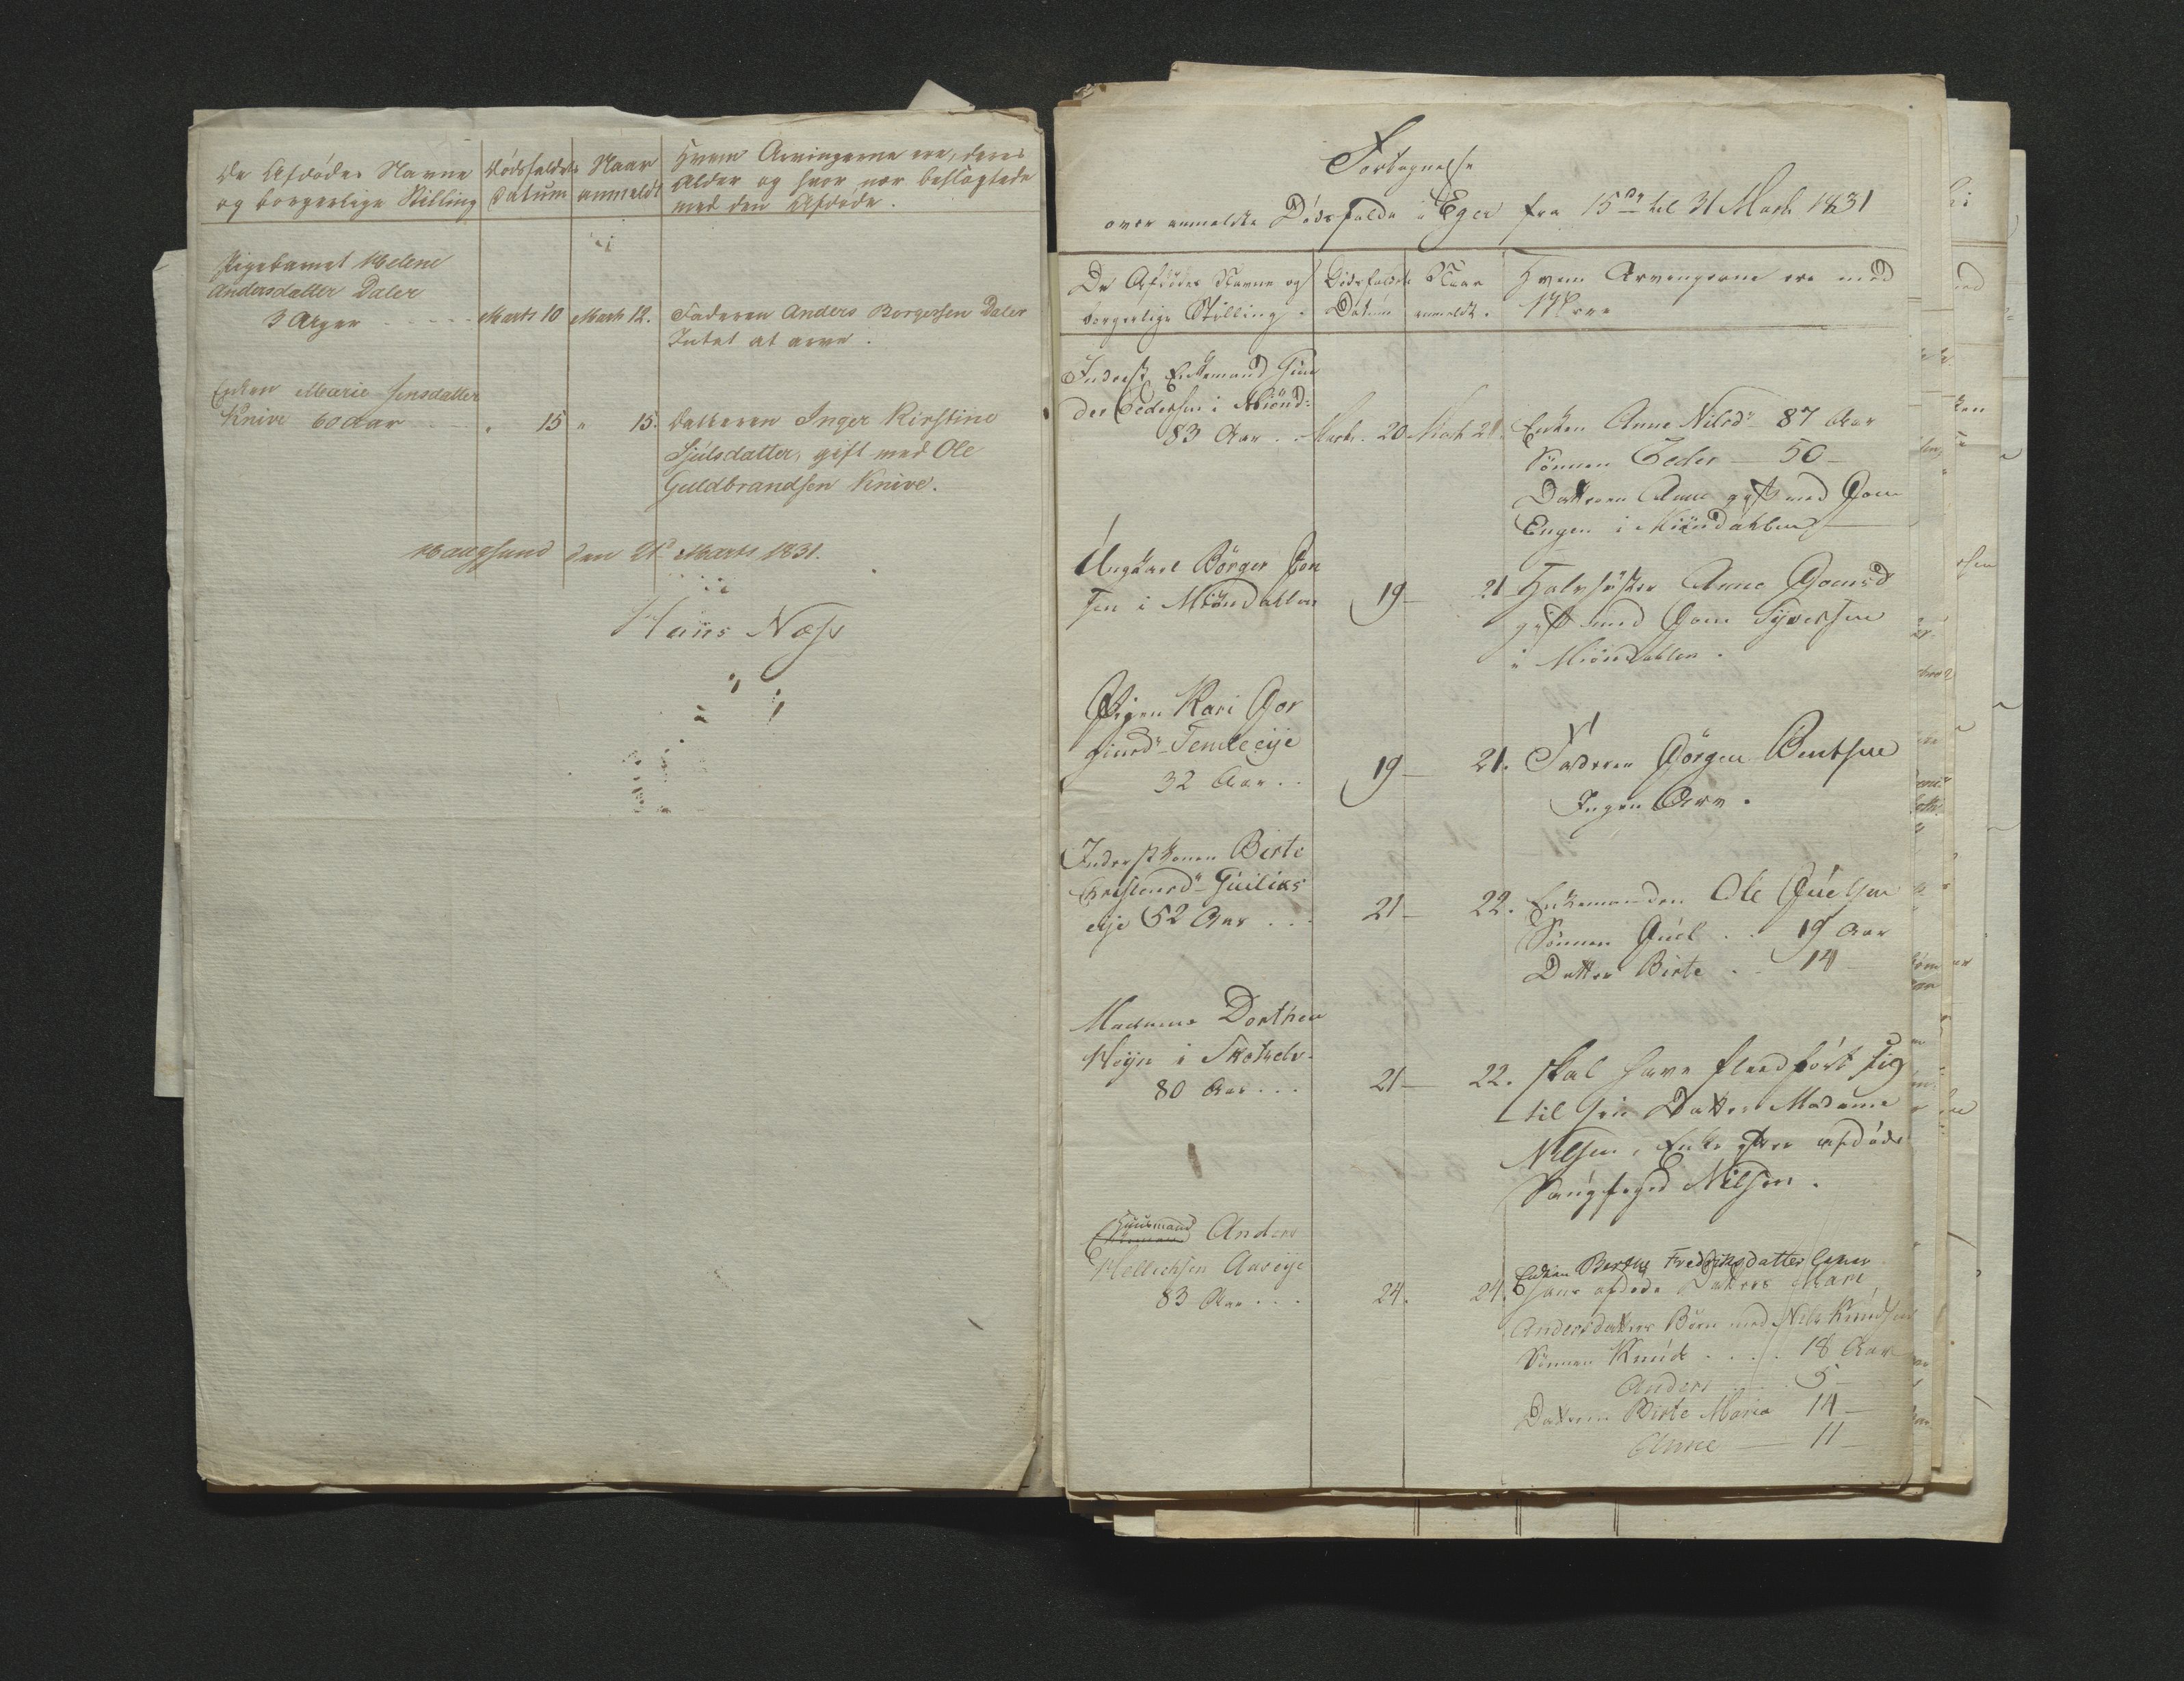 De Afdødes Navne
og borgerlige Stilling
Dødsfaldets
Datum
Naar
anmeldt
Hvem Arvingerne ere, deres
Alder og hvor nær beslægtede
med den Afdøde.
Pigebarnet Helene
Andersdatter Daler
3 Uger - - - - Marts 10 Marts 12. Faderen Anders Borgersen Daler
Intet at arve.
Enken Marie Jensdatter
Knive 60 Aar - - „ 15 „ 15. Datteren Inger Kirstine
Sjulsdatter, gift med Ole
Guldbrandsen Knive.
Haugsund den 21d Marts 1831.
Hans Næss
Fortegnelse
over anmeldte Dødsfalde i Eger fra 15de til 31 Marts 1831
De Afdødes Navne og
borgerlige Stilling.
Dødsfaldets
Datum
Naar
anmeldt.
Hvem Arvingerne ere med
Inderst Enkemand
Pedersen i Miönd-
83 Aar . . Marts. 20 Marts 21. Enken Anne Nilsdr 87 Aar
Sönnen Peder — 50 —
Datteren Anne gift med
Engen i Miöndahlen —
Ungkarl Börger
sen i Miöndahlen 19 — 21 Halvsöster Anne
gift med Syversen
i Miöndahlen.
Pigen Kari Jör
gensdr Temteeije
32 Aar . . 19 — 21. Faderen Jörgen Bentsen
Ingen Arv.
Inderstkonen Birte
Christensdr Guilias
eije 52 Aar . . . 21 — 22. Enkemanden Ole Juelsen
Sönnen Juel . . 19 Aar
Datter Birte . . 14
Madame Dorthea
Heyn i Skotselv.
80 Aar . . . 21 — 22. skal have fledført sig
til sin Datter Madame
Nilsen, Enke efter afdöde
Foged Nilsen.
Huusmand Anders
Hellichsen Aaseije
83 Aar . . . 24. 24. Enken Berthe Fredriksdatter
hans afdöde Datter Mari
Andersdatters Börn med Nils Knudsen
Sönnen Knud . . . . 18 Aar
Anders . . . 5 —
Datteren Birte Maria 14 —
Anne — 11 —